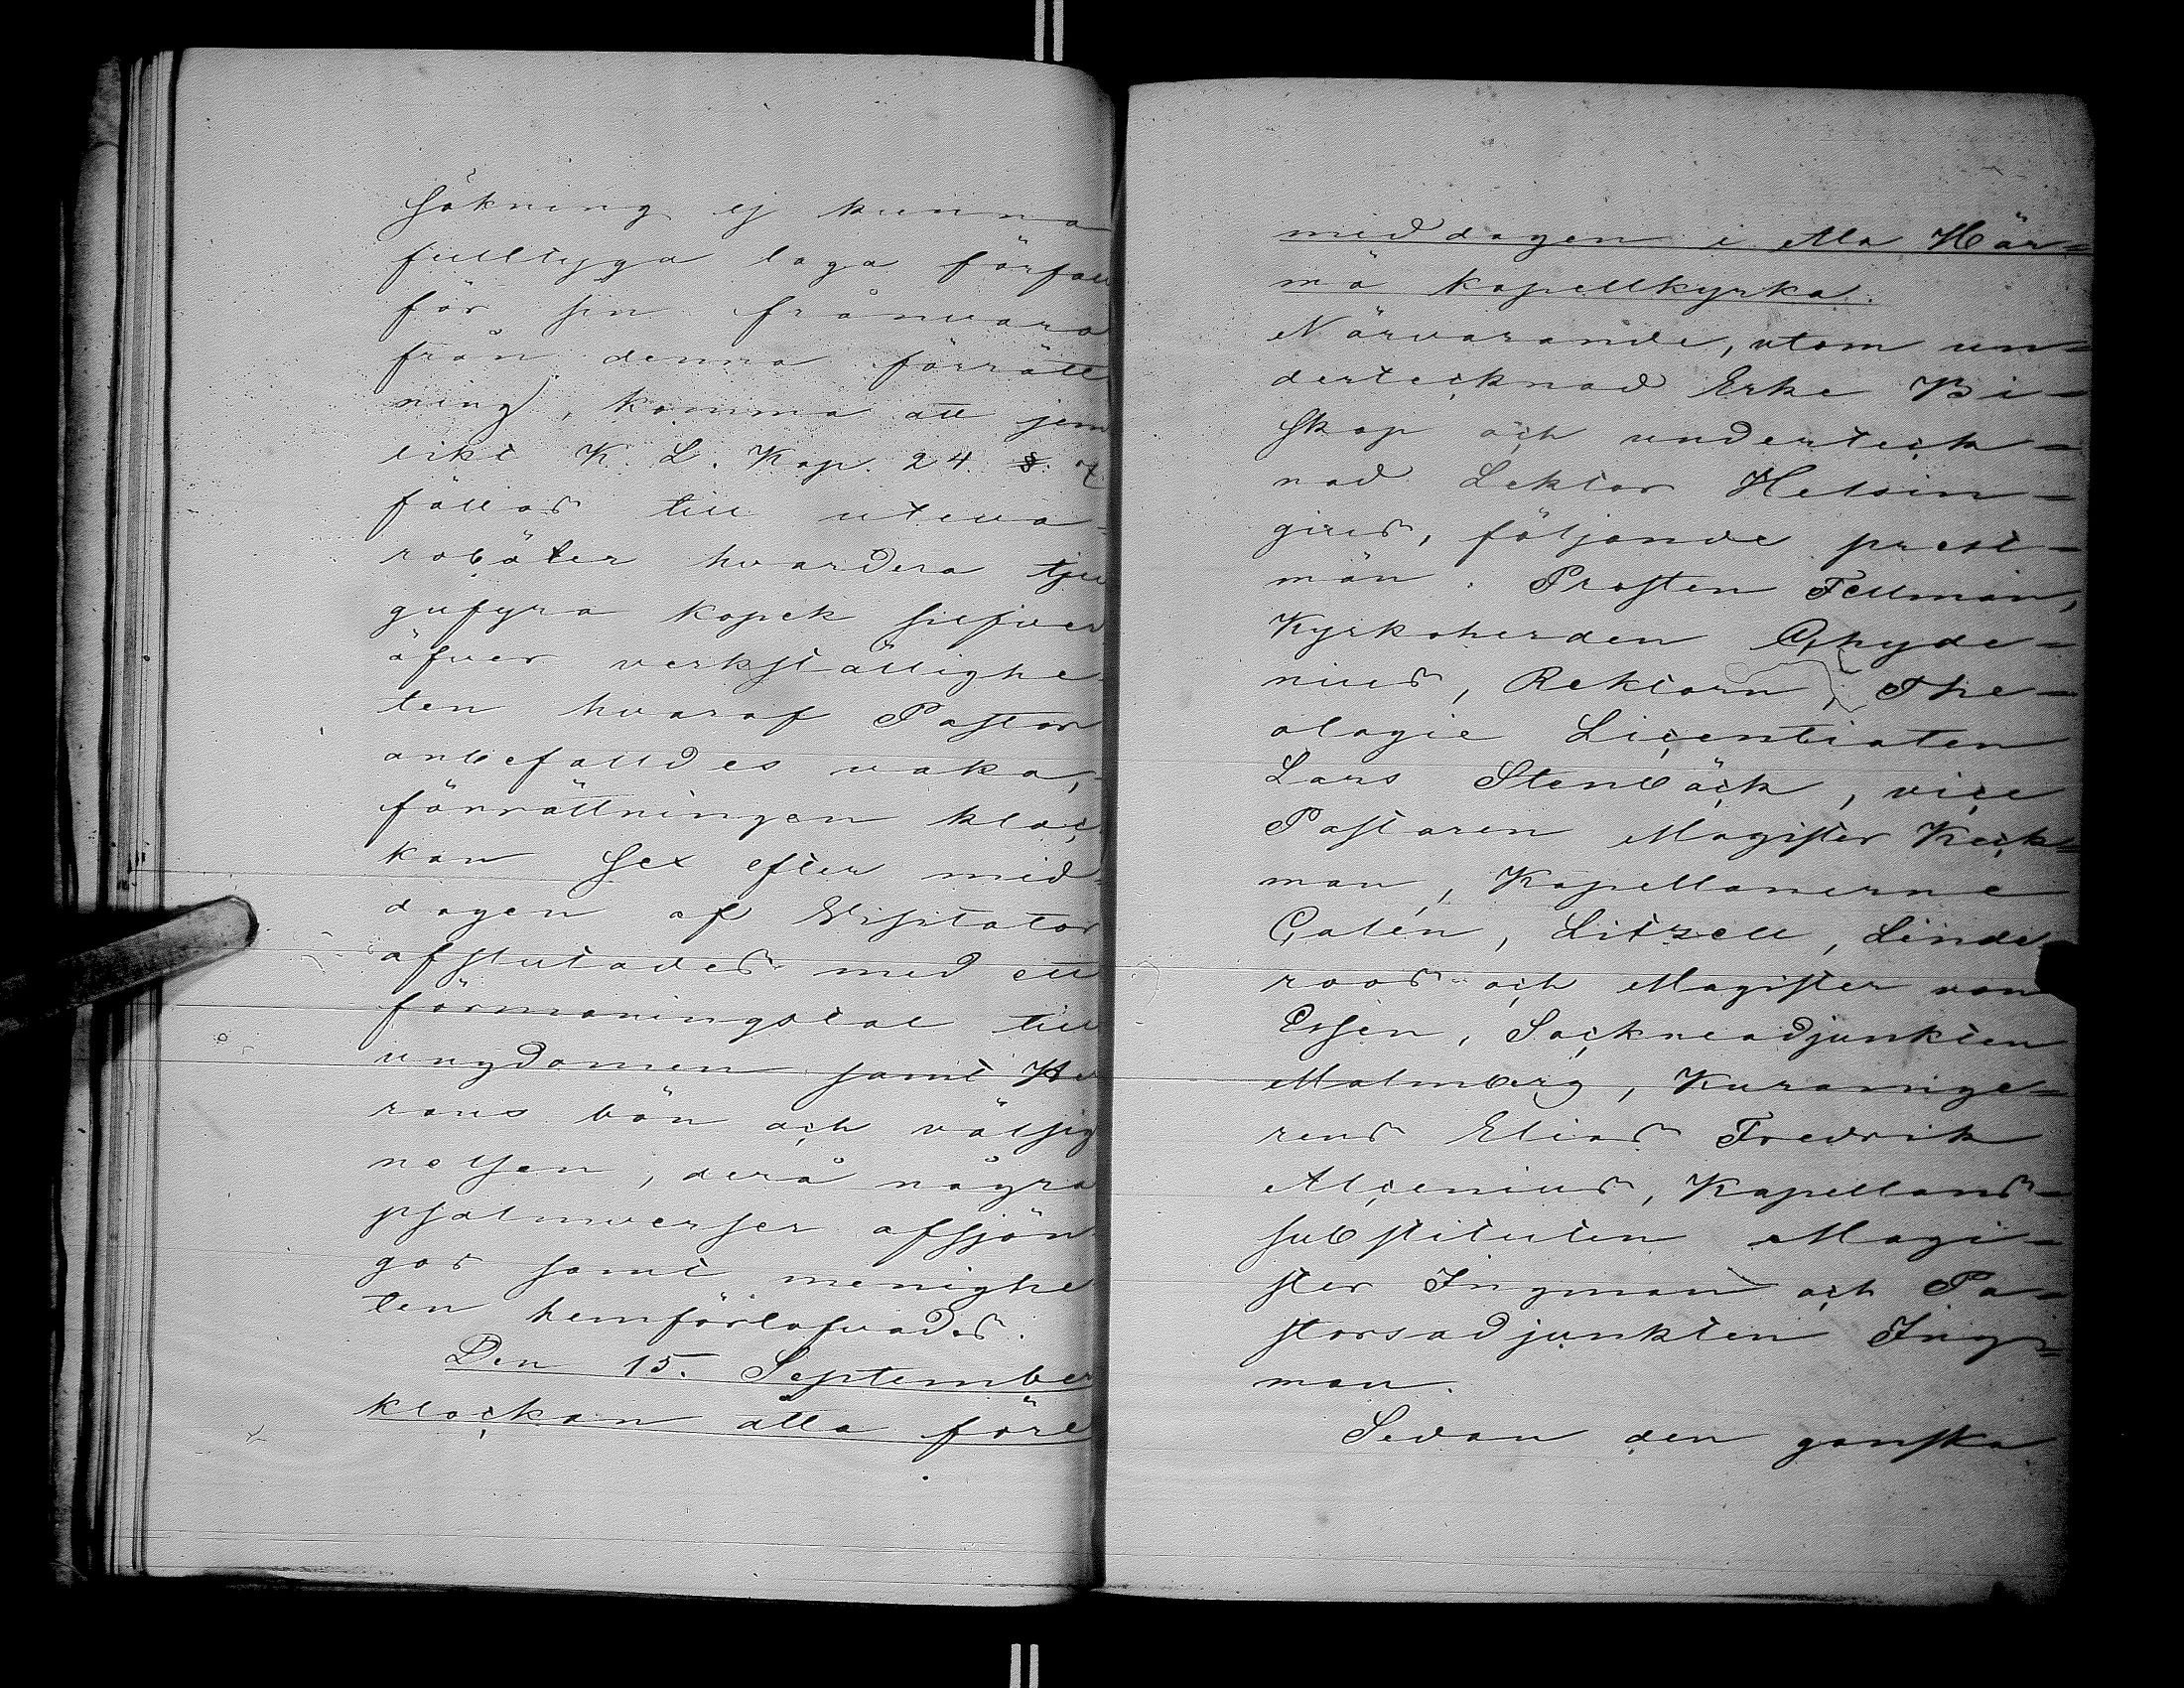 sökning ej kunna
fulltyga laga förfall
för sin frånvaro
från denna förrätt
ning, komma att jem
likt K. L. Kap. 24 §. 7
fällas till uteva-
roböter hvardera tju
gufyra kopek silfver
öfver verkställighe-
ten hvaraf Pastor
anbefalldes vaka,
förrättningen kloc
kan sex efter mid-
dagen af Visitator
afslutades med ett
förmaningstal till
ungdomen samt Her
rans bön och välsig
nelsen, derå några
psalmverser afsjön
gos samt menighe
ten hemförlofvades.
Den 15. September
klockan åtta före
middagen i Ala Här=
mä kapellkyrka.
Närvarande, utom un=
dertecknad Erke Bi-
skop och underteck-
nad Lektor Helsin-
gius, följande prest-
män: Prosten Fellman,
Kyrkoherden Chyde-
nius, Rektorn, The-
ologie Licentiaten
Lars Stenbäck, vice
Pastoren Magister Keck=
man, Kapellanerne
Calén, Litzell, Linde
roos och Magister von
Essen, Sockneadjunkten
Malmberg, Kuramge-
rens Elias Fredrik
Alcenius, Kapellans-
substituten Magi-
ster Ingman och Pa-
storsadjunkten Ing=
man.
Sedan den ganska